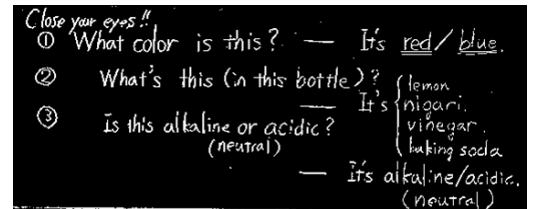 Close your eyes!!
① What color is this? — It's red/blue.
② What's this (in this bottle)?
— It's { lemon
nigari.
vinegar.
baking soda
③ Is this alkaline or acidic?
(neutral)
— It's alkaline/acidic.
(neutral)